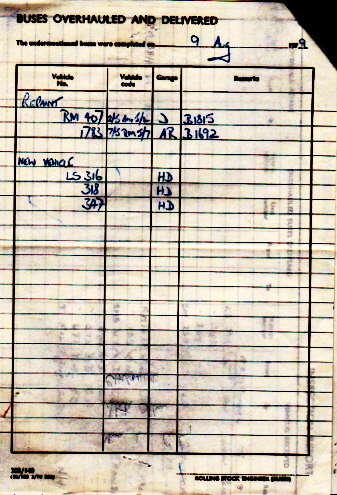 BUSES OVERHAULED AND DELIVERED
The undermentioned buses were completed on 9 Aug 1979
Vehicle No. Vehicle code Garage Remarks
REPAINT
RM 407 2/5 Rm 5/2 D B1815
1783 7/5 Rm 5/7 AR B1692
NEW VEHICLE
LS 316 HD
318 HD
347 HD
ROLLING STOCK ENGINEER (BUSES)